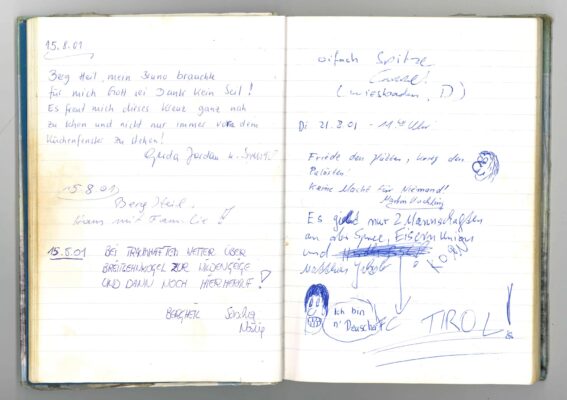 15.8.01
Berg Heil, mein Bruno brauchte
für mich Gott sei Dank kein Seil!
Es freut mich dieses Kreuz ganz nah
zu sehen und nicht nur immer von dem
Küchenfenster zu sehen!
Gerda Jordan u.
15.8.01
Berg Heil,
Hans mit Familie
15.8.01 BEI TRAUMHAFTEN WETTER ÜBER
BREITLEHNKOGEL ZUR
UND DANN NOCH HIERHERAUF!
BERGHEIL
einfach Spitze
(Wiesbaden, D)
Di 21.8.01 - 11 Uhr
Friede den Hütten, Krieg den
Palästen!
Keine Macht für Niemand!
Es gibt nur 2 Mannschaften
an der Spree, Eisern Union
und
KORN
Ich bin
n' Deutscha
FC TIROL!